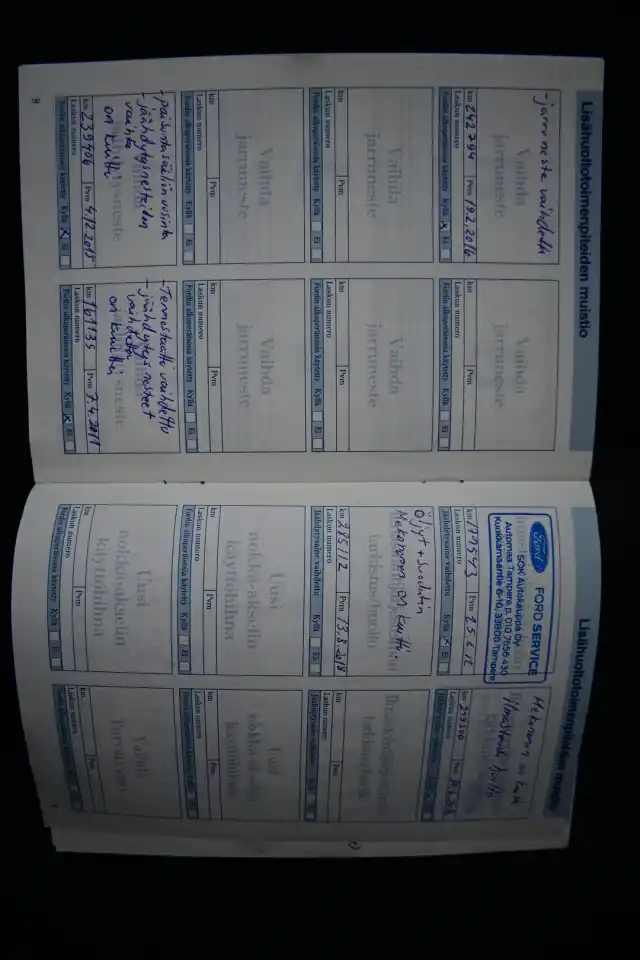 Lisähuoltotoimenpiteiden muistio
- jarruneste vaihdettu
Vaihda
jarruneste
km 242794 Pvm 19.2.2016
Laskun numero
Fordin alkuperäisosia käytetty Kyllä X Ei
Vaihda
jarruneste
km Pvm
Laskun numero
Fordin alkuperäisosia käytetty Kyllä Ei
Vaihda
jarruneste
km Pvm
Laskun numero
Fordin alkuperäisosia käytetty Kyllä Ei
Vaihda
jarruneste
km Pvm
Laskun numero
Fordin alkuperäisosia käytetty Kyllä Ei
Vaihda
jarruneste
km Pvm
Laskun numero
Fordin alkuperäisosia käytetty Kyllä Ei
Vaihda
jarruneste
km Pvm
Laskun numero
Fordin alkuperäisosia käytetty Kyllä Ei
- paisuntasäiliön uusinta
- jäähdytysnesteiden
vaihto
on kuitti
km 239706 Pvm 4.12.2015
Laskun numero
Fordin alkuperäisosia käytetty Kyllä X Ei
- Termostaatti vaihdettu
- jäähdytysnesteet
vaihdettu
on kuitti
km 161135 Pvm 7.4.2011
Laskun numero
Fordin alkuperäisosia käytetty Kyllä X Ei
8
Lisähuoltotoimenpiteiden muistio
Ford
FORD SERVICE
SOK Autokauppa Oy
Automaa Tampere p. 010 7656 430
Kuokkamaantie 6-10, 33800 Tampere
km 179543 Pvm 25.6.12
Laskun numero
Jäähdytysaine vaihdettu Kyllä X Ei
Mekonomen on
huolto
Laskun numero
Öljyt + suodatin
Mekonomen on kuitti
km 285112 Pvm 13.8.2018
Laskun numero
Jäähdytysaine vaihdettu Kyllä Ei
km Pvm
Laskun numero
Uusi
nokka-akselin
käyttöhihna
km Pvm
Laskun numero
Fordin alkuperäisosia käytetty Kyllä Ei
Uusi
nokka-akselin
käyttöhihna
km Pvm
Laskun numero
Uusi
nokka-akselin
käyttöhihna
km Pvm
Laskun numero
Fordin alkuperäisosia käytetty Kyllä Ei
Vaihda
km Pvm
Laskun numero